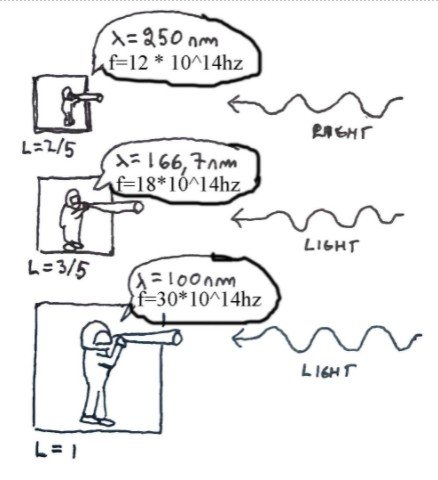 λ=250 nm
f=12 * 10^14hz
L=2/5
λ=166,7nm
f=18*10^14hz
LIGHT
L=3/5
λ=100nm
f=30*10^14hz
LIGHT
L=1